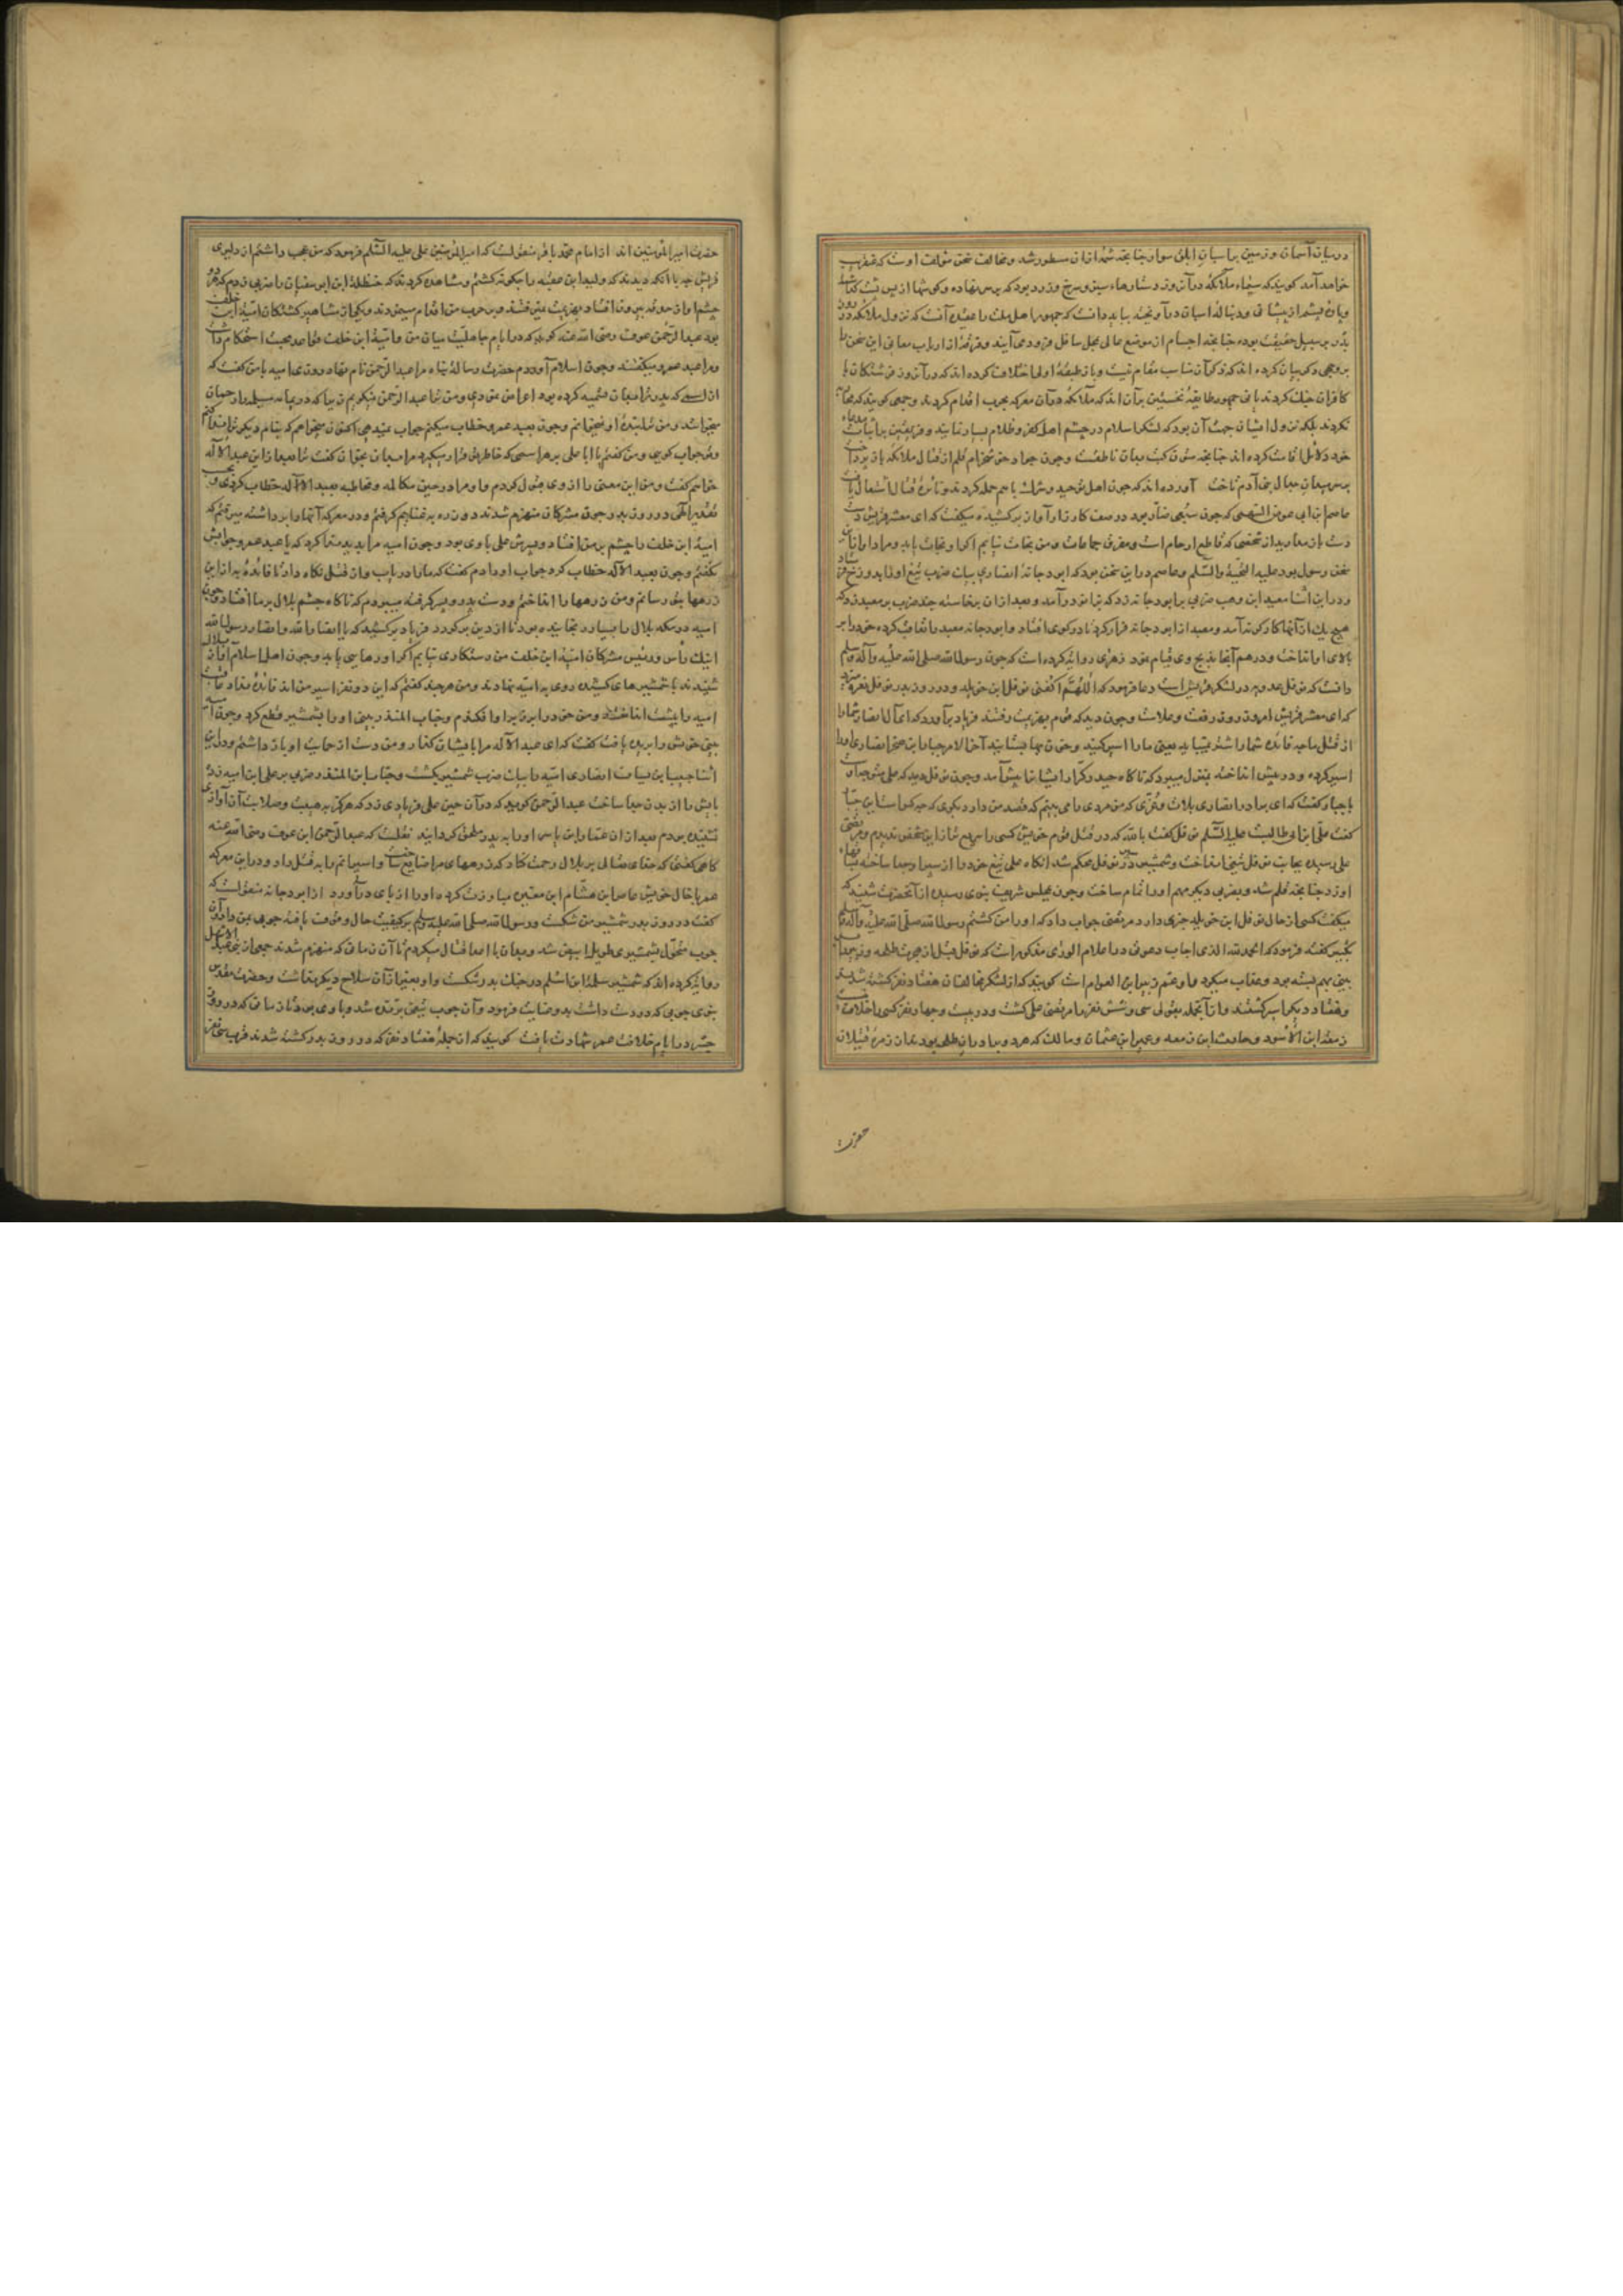 در میان آسمان و زمین بر اسبان ابلق سوار چنانچه شمهٔ ازان مسطور شد و مخالف سخن مؤلف اوست که عنقریب
خواهد آمد کویند که سیماء ملایکه در آن روز دستارهاء سبز و سرخ و زرد بود که بر سر نهاده
بدر بر سبیل حقیقت بوده چنانچه اجسام از موضع عالی بمحل سافل فرود می آیند و فرقهٔ از ارباب معانی این سخن را
بر وجهی دیگر بیان کرده اند که ذکر آن مناسب مقام نیست و باز طبقهٔ اولی اختلاف کرده اند که در آن روز فرشتگان با
کافران جنك کردند یا نی جمهور طایفهٔ نخستین بر آن اند که ملایکه در آن معرکه بحرب اقدام کردند و جمعی کویند که محاربه
نکردند بلکه نزول ایشان جهت آن بود که لشکر اسلام در چشم اهل کفر و ظلام بسیار نمایند و فریقین بر اثبات
خود دلایل اقامت کرده اند چنانچه متون کتب بدان ناطقست و چون جواد خوش خرام قلم از قتال ملایکه باز پرداخت
بر سر میدان جدال بنی آدم تاخت آورده اند که چون اهل توحید و شرك با هم حمله کردند و نایرهٔ قتال اشتعال یافت
عاصم ابن ابی عوف السهمی که چون سبعی ضار بود در صف کارزار آواز برکشیده میکفت که ای معشر قریش دست
دست باز مدارید از شخصی که قاطع ارحام است و مفرق جماعات و من نجات نیابم اکر او نجات یابد و مراد او ازین
سخن رسول بود علیه التحیة والسلم و عاصم درین سخن بود که ابو دجانهٔ انصاری بیك ضرب تیغ او را بدوزخ فرستاد
و در این اثنا معبد ابن وهب ضربی بر ابو دجانه زد که بزانو در آمد و بعد از ان برخاسته چند ضرب بر معبد زد که
هیچ یك از آنها کارکر نه آمد و معبد از ابو دجانه فرار کرد تا در کوی افتاد و ابو دجانه معبد را تعاقب کرده خود را بر
بالای او انداخت و در هم آنجا بذبح وی قیام نمود زهری روایة کرده است که چون رسول الله صلی الله علیه وآله وسلم
دانست که نوفل بن خویلد در لشکر قریش است دعا فرمود که اللهم اکفنی نوفل ابن خویلد و در روز بدر نوفل نعره میزد
که ای معشر قریش امروز روز رفعت و علاست و چون دید که قوم بهزیمت رفتند فریاد بر آورد که ای آل انصار شما را
از قتل ما چه فایده
اسیر کرده و در پیش انداخته بمنزل میبرد که ناکاه حیدر کرار ایشانرا پیش آمد و چون نوفل دید که علی متوجه اوست
با جبار کفت که ای برادر انصاری بلات و عزی که من مردی را می بینم که قصد من دارد بکوی که چه کس است این جبار
کفت علی ابن ابو طالبست علیه السلم نوفل کفت بالله که در قتل قوم خویش کسی را سریع تر از این شخص ندیدم
اورد چنانچه قلم شد و بضربی دیکر مهم او را تمام ساخت و چون بمجلس شریف نبوی رسید از آنحضرت شنید که
میکفت کسی از حال نوفل ابن خویلد خبری دارد مرتضی جواب داد که او را من کشتم رسول الله صلی الله علیه وآله
تکبیر کفته فرمود که الحمد لله الذی اجاب دعوتی در اعلام الوری مذکور است که نوفل قبل از هجرت طلحه و زبیر را
بهم بسته بود و عذاب میکرد و او عم زبیر ابن العوام است کویند که از لشکر مخالفان هفتاد نفر کشته شدند
و هفتاد دیکر اسیر کشتند و از آنجمله بقولی سی و شش نفر را مرتضی علی کشت و در بیست و چهار نفر کسی را خلاف نیست
زمعة ابن الاسود و حارث ابن زمعه و عمیر ابن عثمان و مالك که هر دو برادران طلحه بودند از زمرهٔ قتیلان
حضرت
حضرت امیر المؤمنین اند از امام محمد باقر منقول است که امیر المؤمنین علی علیه السلم فرمود که من عجب داشتم از دلیری
قریش چه با آنکه دیدند که ولید ابن عتبه را چکونه کشتم و مشاهده کردند که حنظلة ابن ابو سفیان را ضربی زدم که هر دو
چشم او از حدقه بیرون افتاد بهزیمت نمیرفتند و بر حرب من اقدام مینمودند و یکی از مشاهیر کشتکان امیة ابن خلف
بود عبد الرحمن عوف رضی الله عنه کوید که در ایام جاهلیت میان من و امیة ابن خلف قواعد محبت استحکام داشت
و مرا عبد عمرو میکفتند و چون اسلام آوردم حضرت رسالة پناه مرا عبد الرحمن نام نهاد روزی امیه با من کفت که
از اسمی که پدر ترا بدان تسمیه کرده بود اعراض نمودی و من ترا عبد الرحمن نمیکویم زیرا که در یمامه مسیله را رحمان
میخوانند و من ترا
خواهم کفت و من این معنی را از وی قبول کردم و او مرا در حین مکالمه و مخاطبه بعبد الاله خطاب کردی
تقدیر الهی در روز بدر چون مشرکان منهزم شدند دو زره به غنایم کرفتم و در معرکه آنها را برداشته میرفتم که
امیة ابن خلف را چشم بر من افتاد و پسرش علی با وی بود و چون امیه مرا بدید ندا کرد که یا عبد عمرو جوابش
نکفتم و چون بعبد الاله خطاب کرد جواب او دادم کفت که ما را دریاب و از قتل نکاه دار تا فایدهٔ به از این
زرهها بتو رسانم و من زرهها را انداختم و دست پدر و پسر کرفته میبردم که ناکاه چشم بلال بر ما افتاد و چون
امیه در مکه بلال را بسیار رنجانیده بود تا از دین برکردد فریاد برکشید که یا انصار الله و انصار رسول الله
اینك رأس و رئیس مشرکان امیة ابن خلف من رستکاری نیابم اکر او رهایی یابد و چون اهل اسلام آواز بلال
شنیدند با شمشیرهای کشیده روی به امیه نهادند و من هر چند کفتم که این دو نفر اسیر من اند فایده نداد
امیه را بپشت انداخته و من خود را بر زبر او افکندم و حباب المنذر بینی او را بشمشیر قطع کرد و چون امیه
بینی خویش را بریده یافت کفت که ای عبد الاله مرا با ایشان کذار و من دست از حمایت او باز داشتم و در این
اثنا حبیب ابن یساف انصاری امیه را بیك ضرب شمشیر بکشت و حباب ابن المنذر ضربی بر علی ابن امیه زد
پایش را از بدن جدا ساخت عبد الرحمن کوید که در آن حین علی فریادی زد که هرکز به هیبت و صلابت آن آوازی
نشنیده بودم بعد از ان عمار ابن یاسر او را به پدر ملحق کردانید نقلست که عبد الرحمن ابن عوف رضی الله عنه
کاهی کفتی که خدای تعالی بر بلال رحمت کناد که زرههای مرا ضایع ساخت و اسیرانم را به قتل داد و در این معرکه
عمر با خال خویش عاص ابن هشام ابن مغیره مبارزت کرده او را از پای در آورد از ابو دجانه منقول است که
کفت در روز بدر شمشیر من شکست و رسول الله صلی الله علیه وسلم بر کیفیت حال وقوف یافته چوبی بمن داد و آن
چوب متحول بشمشیری طویل ابیض شد و بدان با اعدا قتال میکردم تا آن زمان که منهزم شدند جمعی از بنی عبد الاشهل
روایة کرده اند که شمشیر سلمة ابن اسلم در جنك بدر شکست و او بغیر از آن سلاح دیکر نداشت و حضرت مقدس
نبوی چوبی که در دست داشت بدو عنایت فرمود و آن چوب تیغی برنده شد و با وی بود تا زمانی که در روز
جسر در ایام خلافت عمر شهادت یافت کویند که از جملهٔ هفتاد نفر که در روز بدر کشته شدند قریب